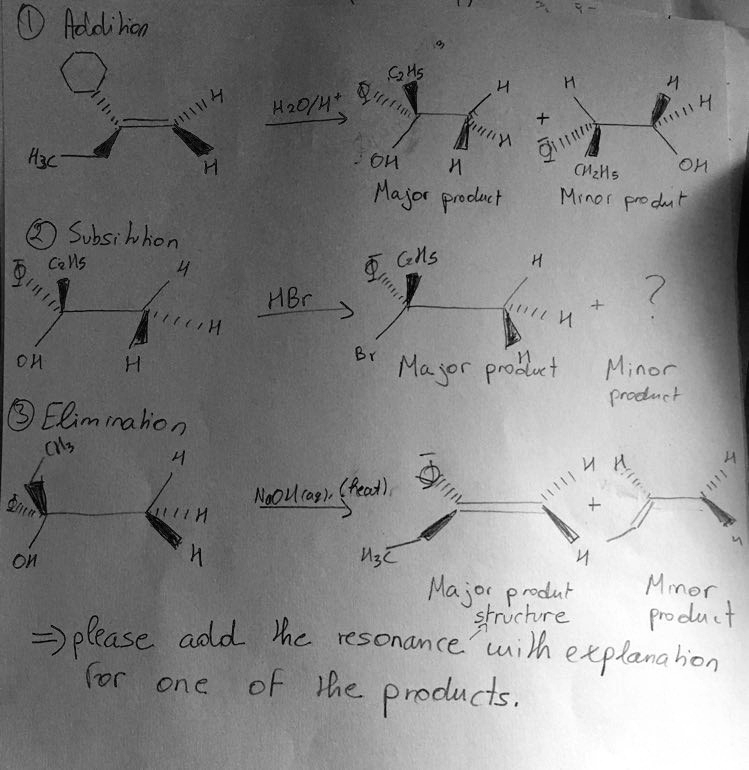 ① Addition
H
H
H3C
H2O/H+
Φ
C2H5
H
H
H
OH
Major product
+
H
H
H
Φ
CH2H5
OH
Minor produt
② Subsitution
Φ
C2H5
H
H
H
OH
HBr
Φ
C2H5
H
H
H
Br
Major product
+
?
Minor
product
③ Elimination
CH3
Φ
H
H
H
OH
NaOH(aq), (heat).
Φ
H
H
H3C
Major produt
structure
+
H
H
H
Minor
product
⇒ please add the resonance with explanation
for one of the products.